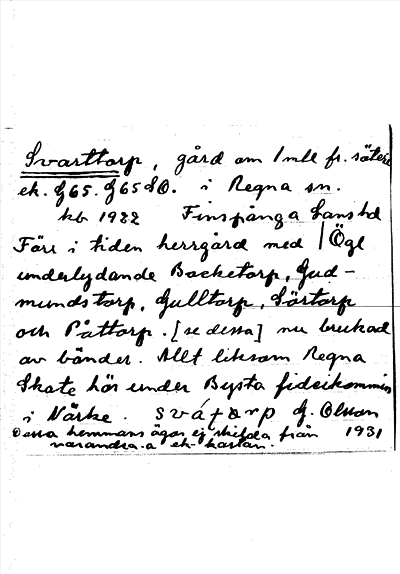 Svarttorp, gård om 1 mtl fr. säteri
ek. G65. G65 SO. i Regna sn.
kb 1932 Finspånga länshd
Förr i tiden herrgård med | Ögl
underlydande Backetorp, Gud-
mundstorp, Gulltorp, Sörtorp
och Påttorp. [se dessa] nu brukad
av bönder. Allt liksom Regna
Skate hör under Bysta fideikommiss
i Närke. sváṭorp G. Olson
Dessa hemmans ägor ej skilda från 1931
varandra å ek. kartan.